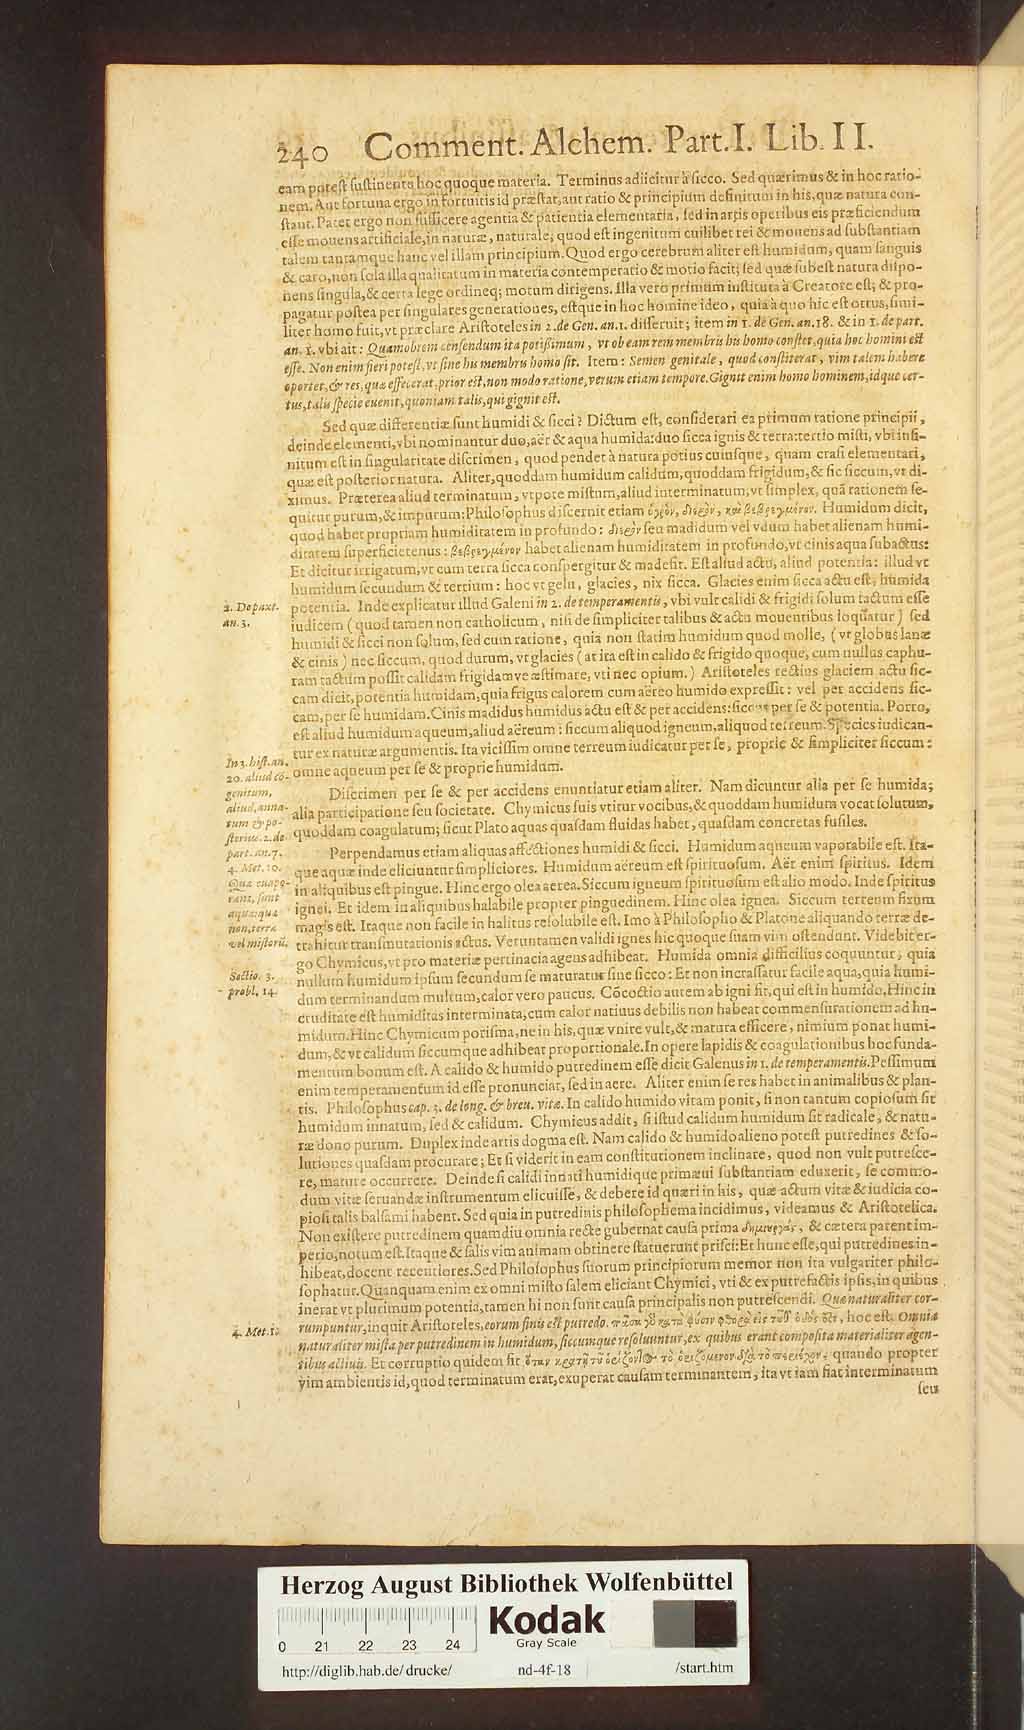 240 Comment. Alchem. Part. I. Lib. II.
eam potest sustinenta hoc quoque materia. Terminus adiicitur à sicco. Sed quærimus & in hoc ratio-
nem. Aut fortuna ergo in fortuitis id præstat, aut ratio & principium definitum in his, quæ natura con-
stant. Patet ergo non sufficere agentia & patientia elementaria, sed in artis operibus eis præficiendum
esse mouens artificiale, in naturæ, naturale, quod est ingenitum cuilibet rei & mouens ad substantiam
talem tantamque hanc vel illam principium. Quod ergo cerebrum aliter est humidum, quam sanguis
& caro, non sola illa qualitatum in materia contemperatio & motio facit; sed quæ subest natura dispo-
nens singula, & certa lege ordineq; motum dirigens. Illa vero primùm instituta à Creatore est; & pro-
pagatur postea per singulares generationes, estque in hoc homine ideo, quia à quo hic est ortus, simi-
liter homo fuit, vt præclare Aristoteles in 2. de Gen. an. 1. disseruit; item in 1. de Gen. an. 18. & in 1. de part.
an. 1. vbi ait: Quamobrem censendum ita potissimum, vt ob eam rem membris his homo constet, quia hoc homini est
esse. Non enim fieri potest, vt sine his membris homo sit. Item: Semen genitale, quod constiterat, vim talem habere
oportet, & res, quæ effecerat, prior est, non modo ratione, verum etiam tempore. Gignit enim homo hominem, idque cer-
tus, talis specie euenit, quoniam talis, qui gignit est.
Sed quæ differentiæ sunt humidi & sicci? Dictum est, considerari ea primum ratione principii,
deinde elementi, vbi nominantur duo, aër & aqua humida: duo sicca ignis & terra: tertio misti, vbi infi-
nitum est in singularitate discrimen, quod pendet à natura potius cuiusque, quam crasi elementari,
quæ est posterior natura. Aliter, quoddam humidum calidum, quoddam frigidum, & sic siccum, vt di-
ximus. Præterea aliud terminatum, vtpote mistum, aliud interminatum, vt simplex, quã rationem se-
quitur purum, & impurum: Philosophus discernit etiam ὑγρὸν, διερὸν, καὶ βεβρεγμένον. Humidum dicit,
quod habet propriam humiditatem in profundo: διερὸν seu madidum vel vdum habet alienam humi-
ditatem superficietenus: βεβρεγμένον habet alienam humiditatem in profundo, vt cinis aqua subactus:
Et dicitur irrigatum, vt cum terra sicca conspergitur & madefit. Est aliud actu, aliud potentia: illud vt
humidum secundum & tertium: hoc vt gelu, glacies, nix sicca. Glacies enim sicca actu est, humida
2. De part.
an. 3.
potentia. Inde explicatur illud Galeni in 2. de temperamentis, vbi vult calidi & frigidi solum tactum esse
iudicem (quod tamen non catholicum, nisi de simpliciter talibus & actu mouentibus loquatur) sed
humidi & sicci non solum, sed cum ratione, quia non statim humidum quod molle, (vt globus lanæ
& cinis) nec siccum, quod durum, vt glacies (at ita est in calido & frigido quoque, cum nullus caphu-
ram tactum possit calidam frigidamve æstimare, vti nec opium.) Aristoteles rectius glaciem actu sic-
cam dicit, potentia humidam, quia frigus calorem cum aëreo humido expressit: vel per accidens sic-
cam, per se humidam. Cinis madidus humidus actu est & per accidens: siccus per se & potentia. Porro,
est aliud humidum aqueum, aliud aëreum: siccum aliquod igneum, aliquod terreum. Species iudican-
tur ex naturæ argumentis. Ita vicissim omne terreum iudicatur per se, proprie & simpliciter siccum:
omne aqueum per se & proprie humidum.
In 3. hist. an.
20. aliud co-
genitum,
aliud, anna-
tum & po-
sterius. 2. de
part. an. 7.
4. Met. 10.
Quæ euapo-
rant, sunt
aquæ: quæ
non, terræ
vel mistorū.
Discrimen per se & per accidens enuntiatur etiam aliter. Nam dicuntur alia per se humida;
alia participatione seu societate. Chymicus suis vtitur vocibus, & quoddam humidum vocat solutum,
quoddam coagulatum; sicut Plato aquas quasdam fluidas habet, quasdam concretas fusiles.
Perpendamus etiam aliquas affectiones humidi & sicci. Humidum aqueum vaporabile est. Ita-
que aquæ inde eliciuntur simpliciores. Humidum aëreum est spirituosum. Aër enim spiritus. Idem
in aliquibus est pingue. Hinc ergo olea aerea. Siccum igneum spirituosum est alio modo. Inde spiritus
ignei. Et idem in aliquibus halabile propter pinguedinem. Hinc olea ignea. Siccum terreum fixum
magis est. Itaque non facile in halitus resolubile est. Imo à Philosopho & Platone aliquando terræ de-
trahitur transmutationis actus. Veruntamen validi ignes hic quoque suam vim ostendunt. Videbit er-
go Chymicus, vt pro materiæ pertinacia agens adhibeat. Humida omnia difficilius coquuntur, quia
Sectio. 3.
probl. 14.
nullum humidum ipsum secundum se maturatur sine sicco: Et non incrassatur facile aqua, quia humi-
dum terminandum multum, calor vero paucus. Cõcoctio autem ab igni fit, qui est in humido, Hinc in
cruditate est humiditas interminata, cum calor natiuus debilis non habeat commensurationem ad hu-
midum. Hinc Chymicum porisma, ne in his, quæ vnire vult, & matura efficere, nimium ponat humi-
dum, & vt calidum siccumque adhibeat proportionale. In opere lapidis & coagulationibus hoc funda-
mentum bonum est. A calido & humido putredinem esse dicit Galenus in 1. de temperamentis. Pessimum
enim temperamentum id esse pronunciat, sed in aere. Aliter enim se res habet in animalibus & plan-
tis. Philosophus cap. 3. de long. & breu. vitæ. In calido humido vitam ponit, si non tantum copiosum sit
humidum innatum, sed & calidum. Chymicus addit, si istud calidum humidum sit radicale, & natu-
ræ dono purum. Duplex inde artis dogma est. Nam calido & humido alieno potest putredines & so-
lutiones quasdam procurare; Et si viderit in eam constitutionem inclinare, quod non vult putresce-
re, mature occurrere. Deinde si calidi innati humidique primæui substantiam eduxerit, se commo-
dum vitæ seruandæ instrumentum elicuisse, & debere id quæri in his, quæ actum vitæ & iudicia co-
piosi talis balsami habent. Sed quia in putredinis philosophema incidimus, videamus & Aristotelica.
Non existere putredinem quamdiu omnia recte gubernat causa prima δημιουργὰς, & cætera parent im-
perio, notum est. Itaque & salis vim animam obtinere statuerunt prisci: Et hunc esse, qui putredines in-
hibeat, docent recentiores. Sed Philosophus suorum principiorum memor non ita vulgariter philo-
sophatur. Quanquam enim ex omni misto salem eliciant Chymici, vti & ex putrefactis ipsis, in quibus
inerat vt plurimum potentia, tamen hi non sunt causa principalis non putrescendi. Quæ naturaliter cor-
4. Met. 1.
rumpuntur, inquit Aristoteles, eorum finis est putredo. hoc est: Omnia
naturaliter mista per putredinem in humidum, siccumque resoluuntur, ex quibus erant composita materialiter agen-
tibus alliuis. Et corruptio quidem fit ὅταν κρατῇ τοῦ ὁρίζοντος τὸ ὁριζόμενον διὰ τὸ περιέχον, quando propter
vim ambientis id, quod terminatum erat, exuperat causam terminantem, ita vt iam fiat interminatum
seu
Herzog August Bibliothek Wolfenbüttel
Kodak
Gray Scale
0 21 22 23 24
http://diglib.hab.de/drucke/ nd-4f-18 /start.htm